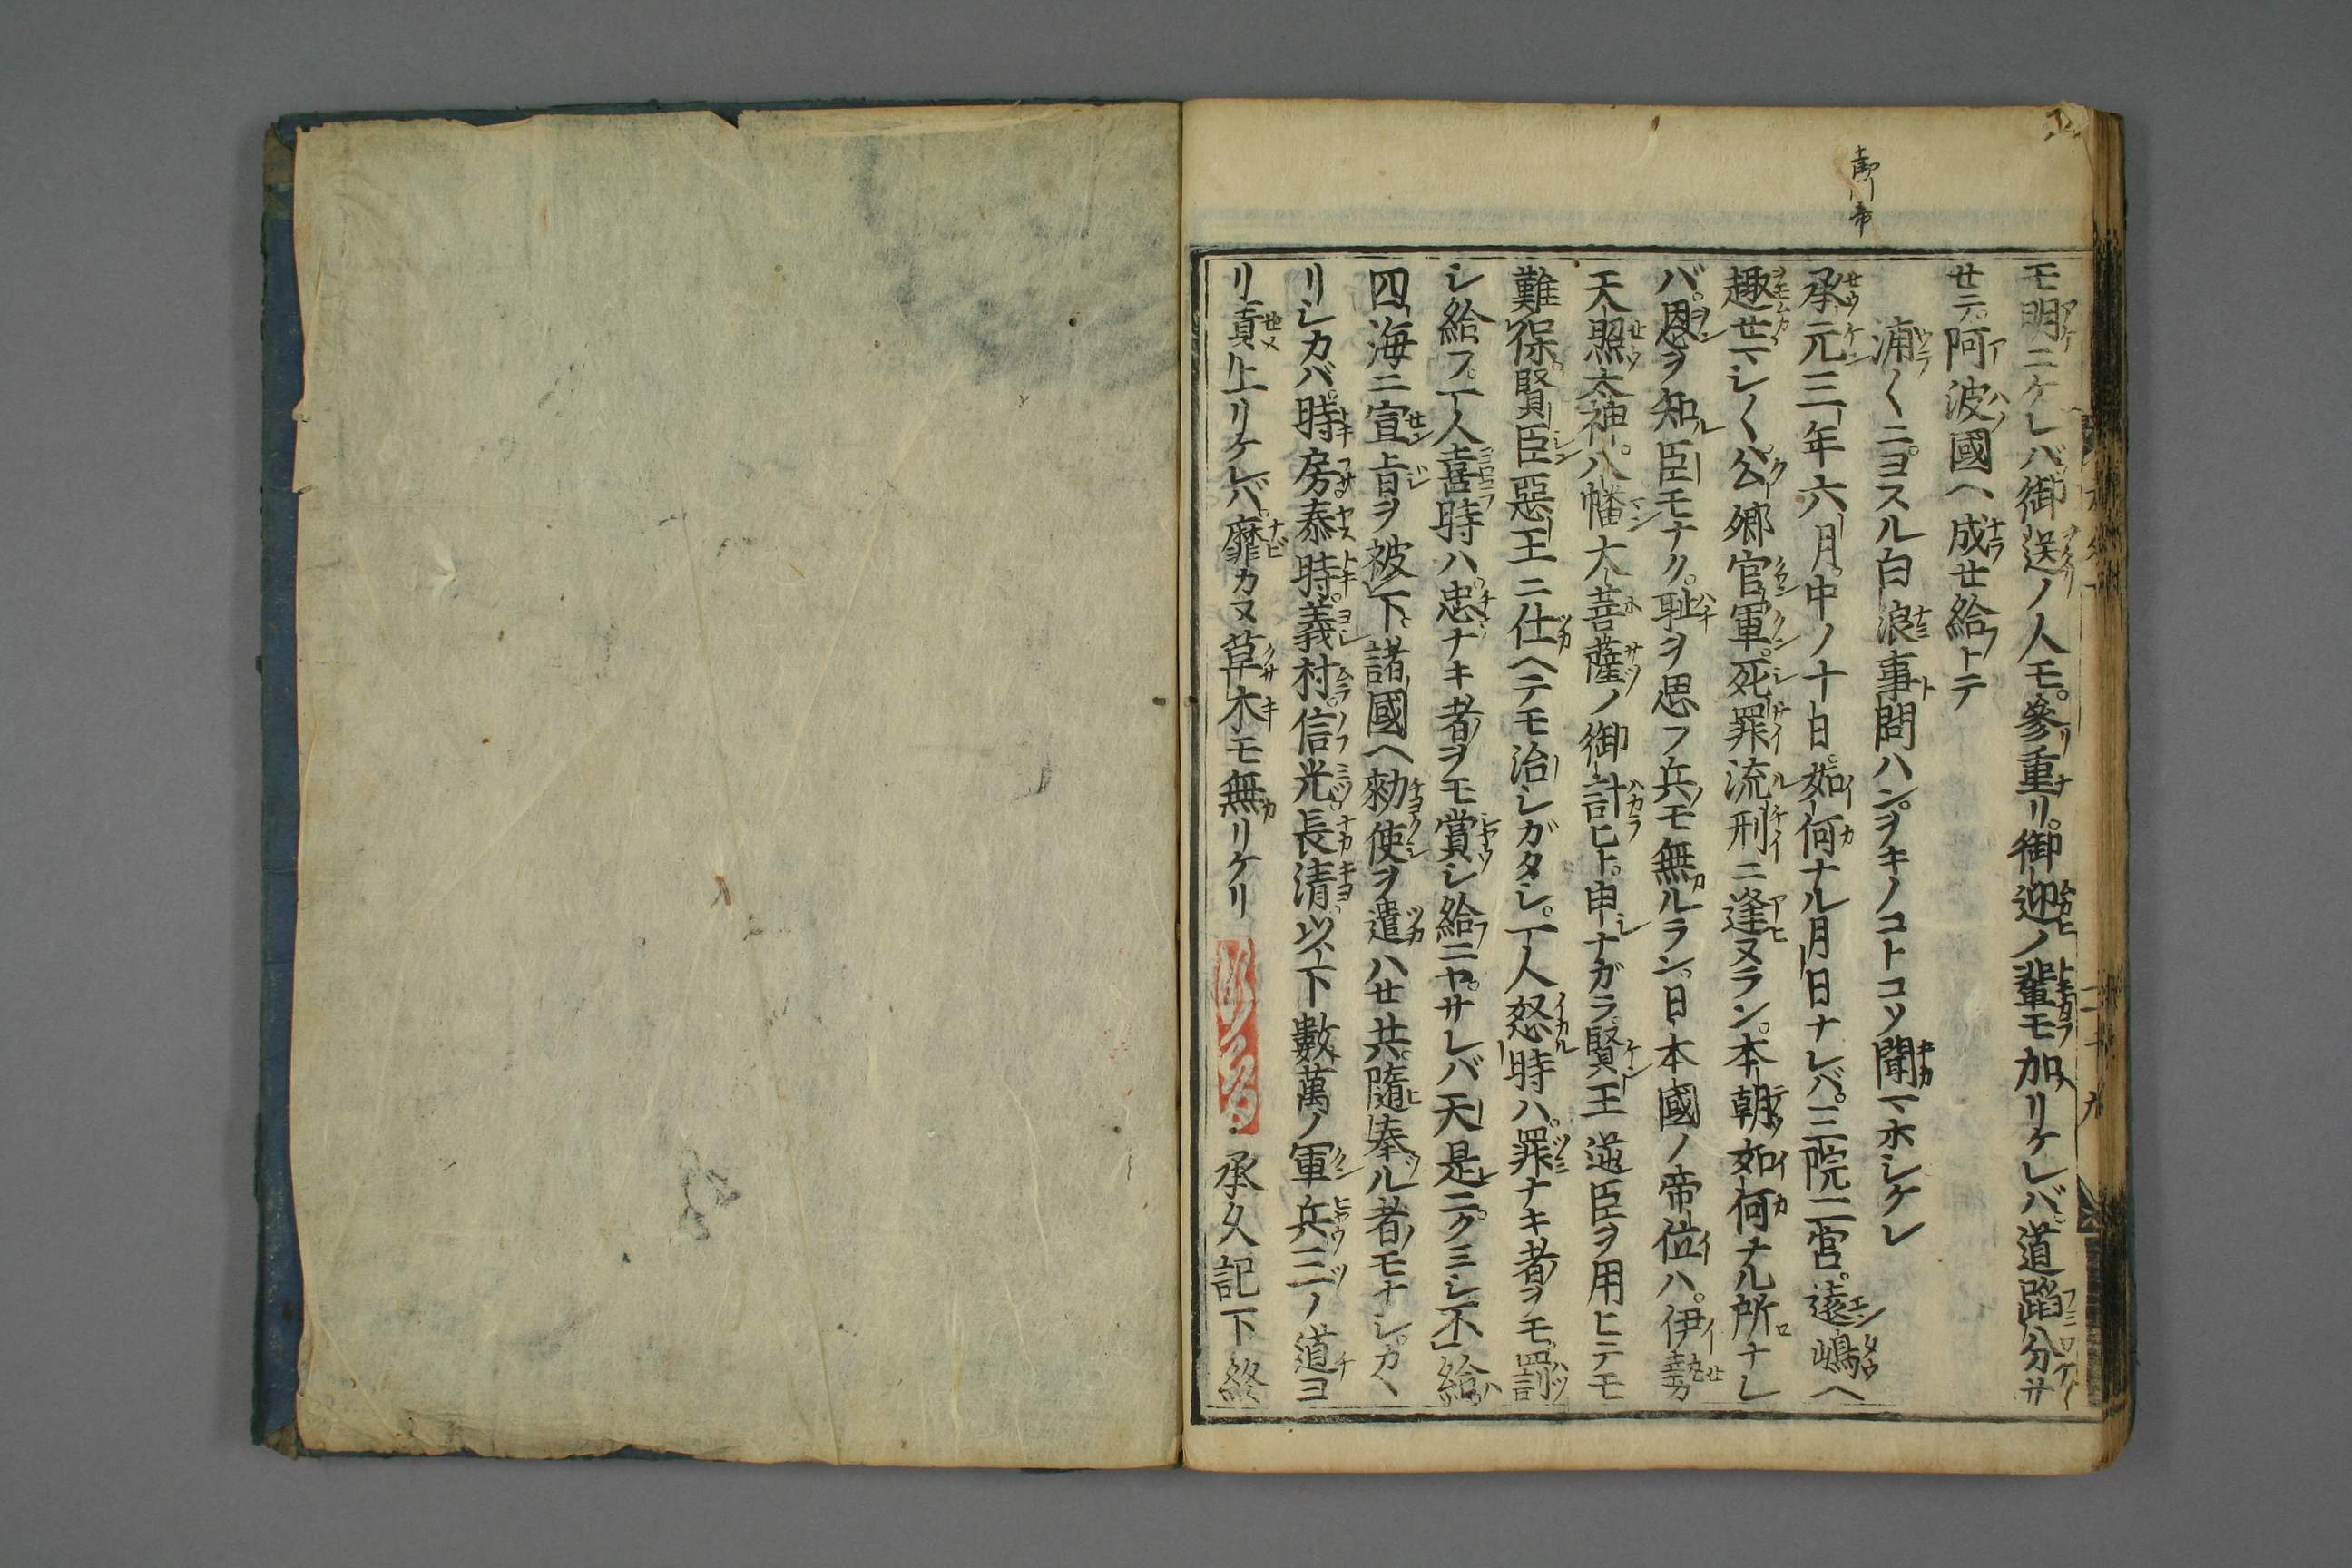 モ明ニケレバ御送ノ人モ。參重リ。御迎ノ輩モ加リケレバ。道蹈分サ
セテ。阿波國ヘ成セ給フトテ
浦〱ニヨスル白浪事問ハン。ヲキノコトコソ聞マホシケレ
承元三年六月中ノ十日。如何ナル月日ナレバ。三院二宮。遠嶋ヘ
趣セマシ〱。公卿官軍。死罪流刑ニ逢ヌラン。本朝如何ナル所ナレ
バ。恩ヲ知臣モナク。耻ヲ思フ兵モ無ルラン。日本國ノ帝位ハ。伊勢
天照太神。八幡大菩薩ノ御計ヒト。申ナガラ。賢王逆臣ヲ用ヒテモ
難保。賢臣惡王ニ仕ヘテモ治シガタシ。一人怒時ハ。罪ナキ者ヲモ罰
シ給フ。一人喜時ハ。忠ナキ者ヲモ賞シ給ニヤ。サレバ天是ニクミシ不給
四海ニ宣旨ヲ被下。諸國ヘ勅使ヲ遣ハセ共。隨奉ル者モナシ。カヽ
リシカバ。時房泰時。義村。信光長清。以下數萬ノ軍兵三ノ道ヨ
リ責上リケレバ。靡カヌ草木モ無リケリ
承久記下終